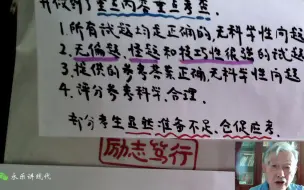 1.所有试题均是正确的,无科学性问题
2.无偏题、怪题和技巧性很强的试题
3.提供的参考答案正确,无科学性问题
4.评分参考科学、合理.
部分考生虽然准备不足、仓促应考.
励志笃行
永乐讲现代